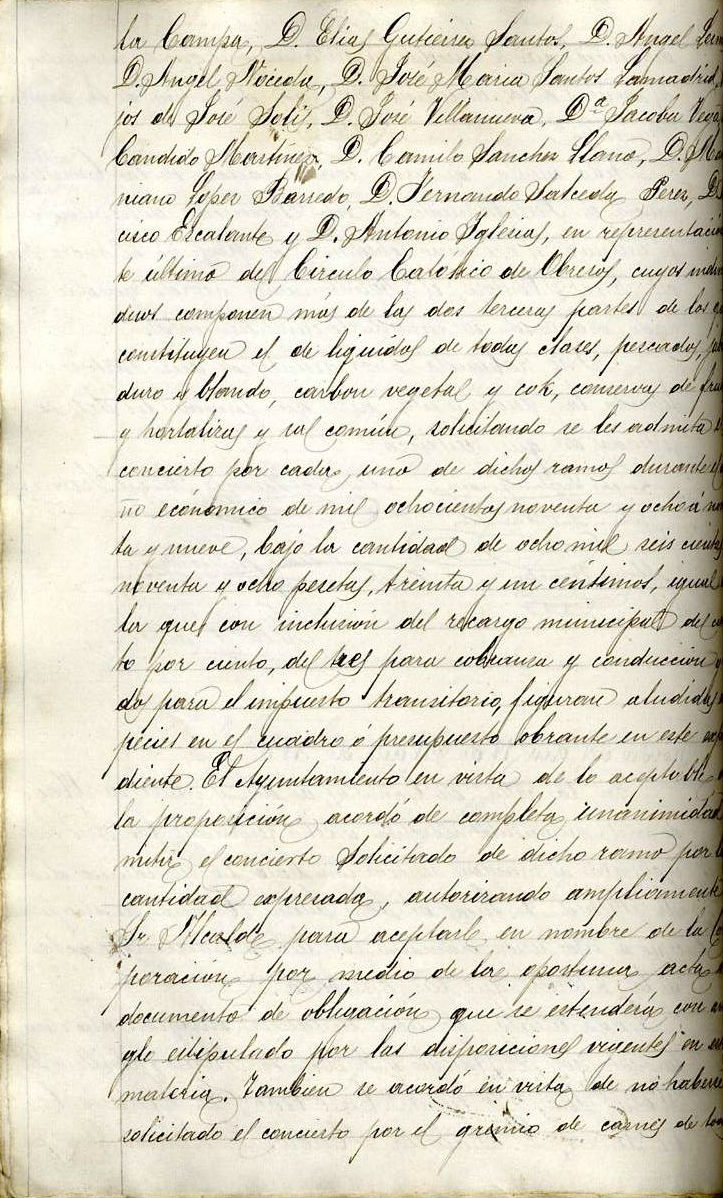 la Campa, D. Elias Gutierrez Santos, D. Angel
D. Angel Noceda, D. José Maria Santos Lamadrid,
jos de José Soliz, D. José Villanueva, Dª Jacoba
Candido Martinez, D. Camilo Sanchez Llano, D. Ma
niano Lopez Barredo, D. Fernando Salceda Perez, D.
cisco Escalante y D. Antonio Iglesias, en representacion
te último del Circulo Católico de Obreros, cuyos
duos componen más de las dos terceras partes de los
constituyen el de liquidos de todas clases, pescados,
duro y blando, carbon vegetal y cok, conservas de
y hortalizas y sal común, solicitando se les admita
concierto por cada uno de dichos ramos durante el
ño económico de mil ochocientos noventa y ocho á
ta y nueve, bajo la cantidad de ocho mil seis cientas
noventa y ocho pesetas, treinta y un céntimos, igual
la que con inclusión del recargo municipal del
to por ciento, del tres para cobranza y conduccion
dos para el impuesto transitorio, figuran aludidas
pecies en el cuadro ó presupuesto obrante en este
diente. El Ayuntamiento en vista de lo aceptable
la proposición acordó de completa unanimidad
mitir el concierto solicitado de dicho ramo por la
cantidad expresada, autorizando ampliamente
Sr. Alcalde para aceptarle en nombre de la
poración por medio de la oportuna acta
documento de obligación que se estendería con
glo estipulado por las disposiciones vigentes en
materia. Tambien se acordó en vista de no haberse
solicitado el concierto por el gremio de carnes de